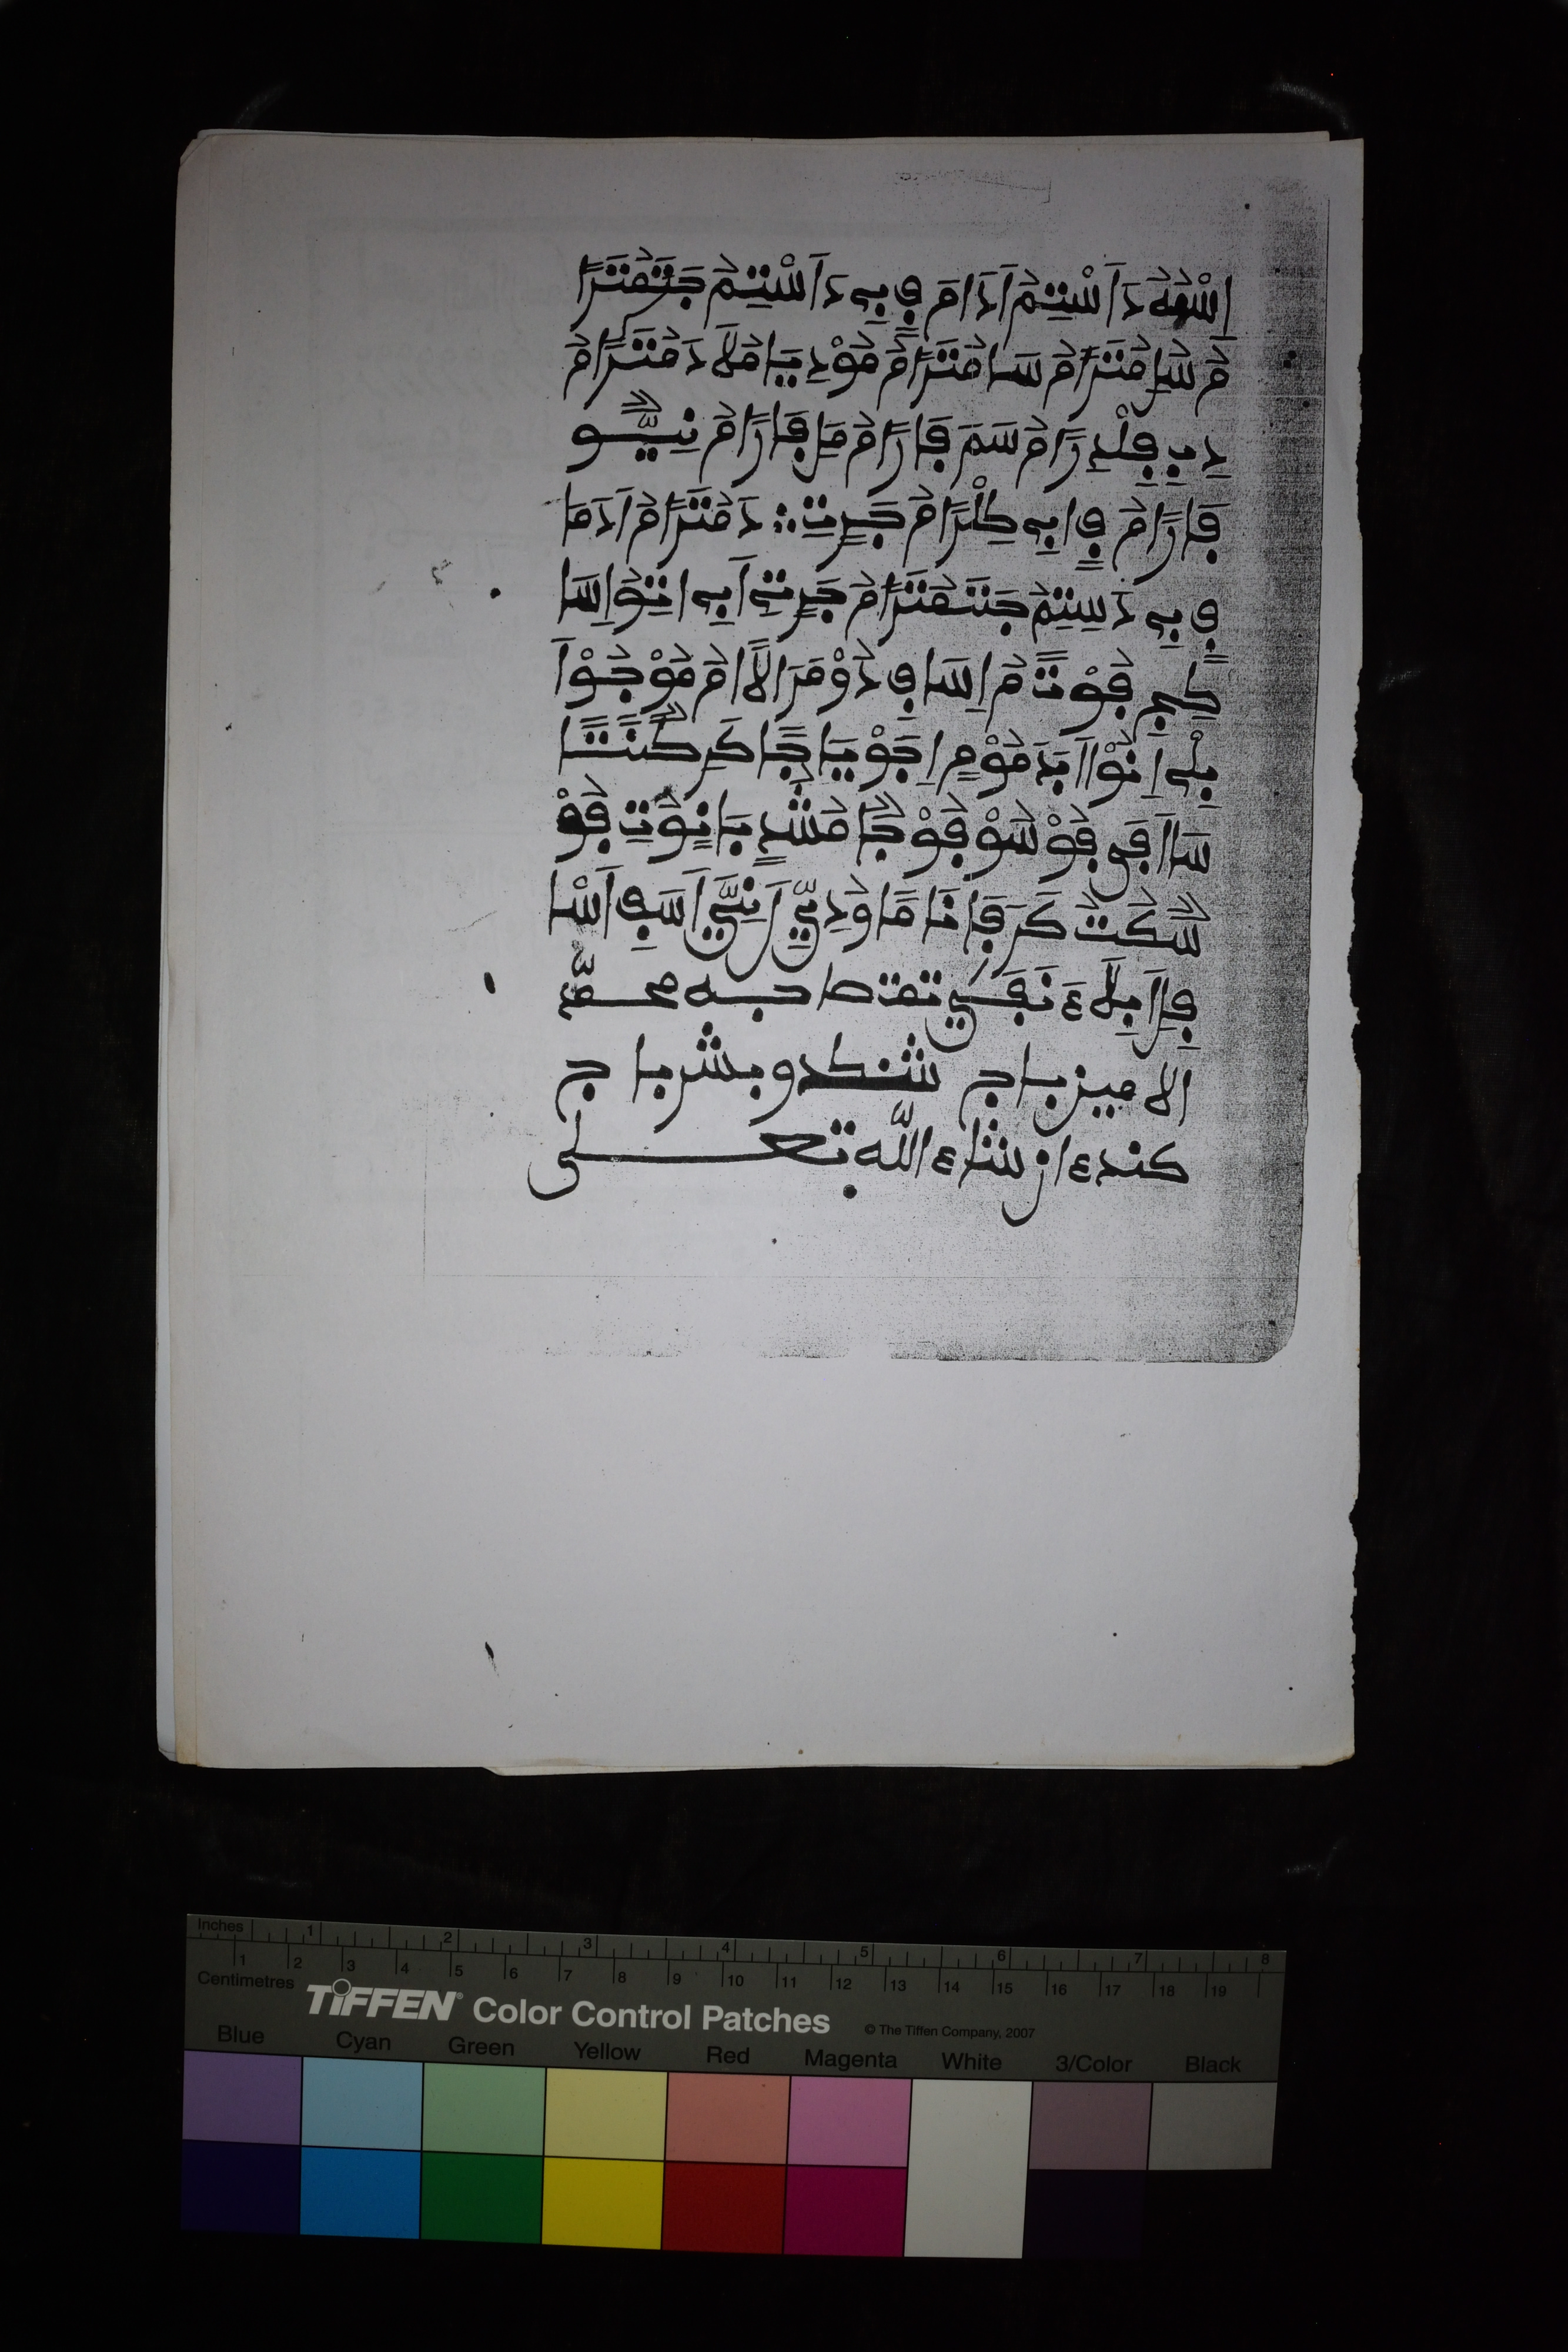 اِسْفَهُ دَ اَسْتِمُ اَدَامَ فٍ بِہِ دَ اَسْتِمُ جَتَفَتَرًا
مُ سَاِ مَتَرًا مُ سَا مَتَرًا مُ مُوْدِ يَا مَلَا دَ مَتَرًا مُ
دِ بِ فِلْدِ رًا مُ سَمَ فَا رًا مُ مَا فَا رًا مُ نِيُّو
فَا رًا مُ فٍ ابِہِ كِلْرًا مُ جَرٍتِ ؞ دَ مَتَرًا مُ اَدَمَا
فٍ بِہِ دَ سِتِمُ جَتَفَتَرًا مُ جَرٍتِ اَبِہِ اتِوُ اِسَا
كِلِجِ فُوْتً مُ اِسَا فِ دُوْ مَرَ الًا مُ مُوْ جُوْ اَ
بِلْہِ اِنُوْ اَ ابَدَ مُوْمٍ اِ جَوْ يَا جًا كَرِ كُنَتًا
سَا اَفَى فُوْ سُوْ فُوْ جَا مُشُدٍ بَا نٍوُتِ فُوْ
سُكُتُ كَرَفَا نَا مَا وُدِيِّ اَنِيَّ اَسَفِ اَسْا
فِرًا بِلَا ءَ نَفَسِي تمت صا حبه محمّد
الا مين با ج شنكدو بشر با ج
كندء ان شاء اللّه تعلى
Inches 1 2 3 4 5 6 7 8
Centimetres 1 2 3 4 5 6 7 8 9 10 11 12 13 14 15 16 17 18 19
TIFFEN® Color Control Patches © The Tiffen Company, 2007
Blue Cyan Green Yellow Red Magenta White 3/Color Black